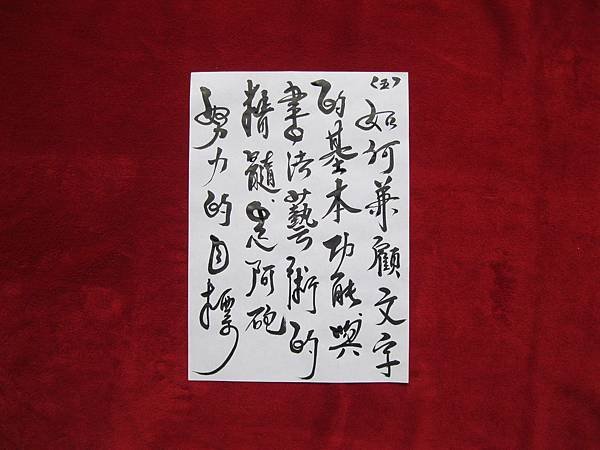 （五）如何兼顧文字
的基本功能與
書法藝術的
精髓是阿砲
努力的目標